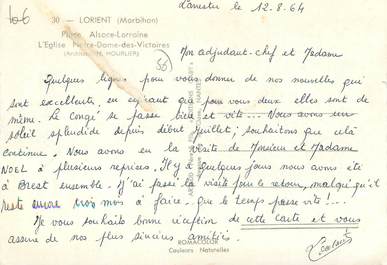 Lanester le 12-8-64
66
30 - LORIENT (Morbihan)
Place Alsace-Lorraine
L'Eglise Notre-Dame-des-Victoires
(Architecte HOURLIER)
(56)
Mon adjudant-chef et Madame
Quelques lignes pour vous donner de nos nouvelles qui
sont excellentes, en espérant que pour vous deux elles sont de
même. Le Congé se passe bien et vite... Nous avons un
soleil splendide depuis début Juillet; souhaitons que cela
continue. Nous avons eu la visite de Monsieur et Madame
NOEL à plusieurs reprises. Il y a quelques jours nous avons été
à Brest ensemble. J'ai passé la visite pour le retour, malgré qu'il
reste encore trois mois à faire. Que le temps passe vite!...
Je vous souhaite bonne réception de cette Carte et vous
assure de nos plus sincères amitiés.
ROMACOLOR
Couleurs Naturelles